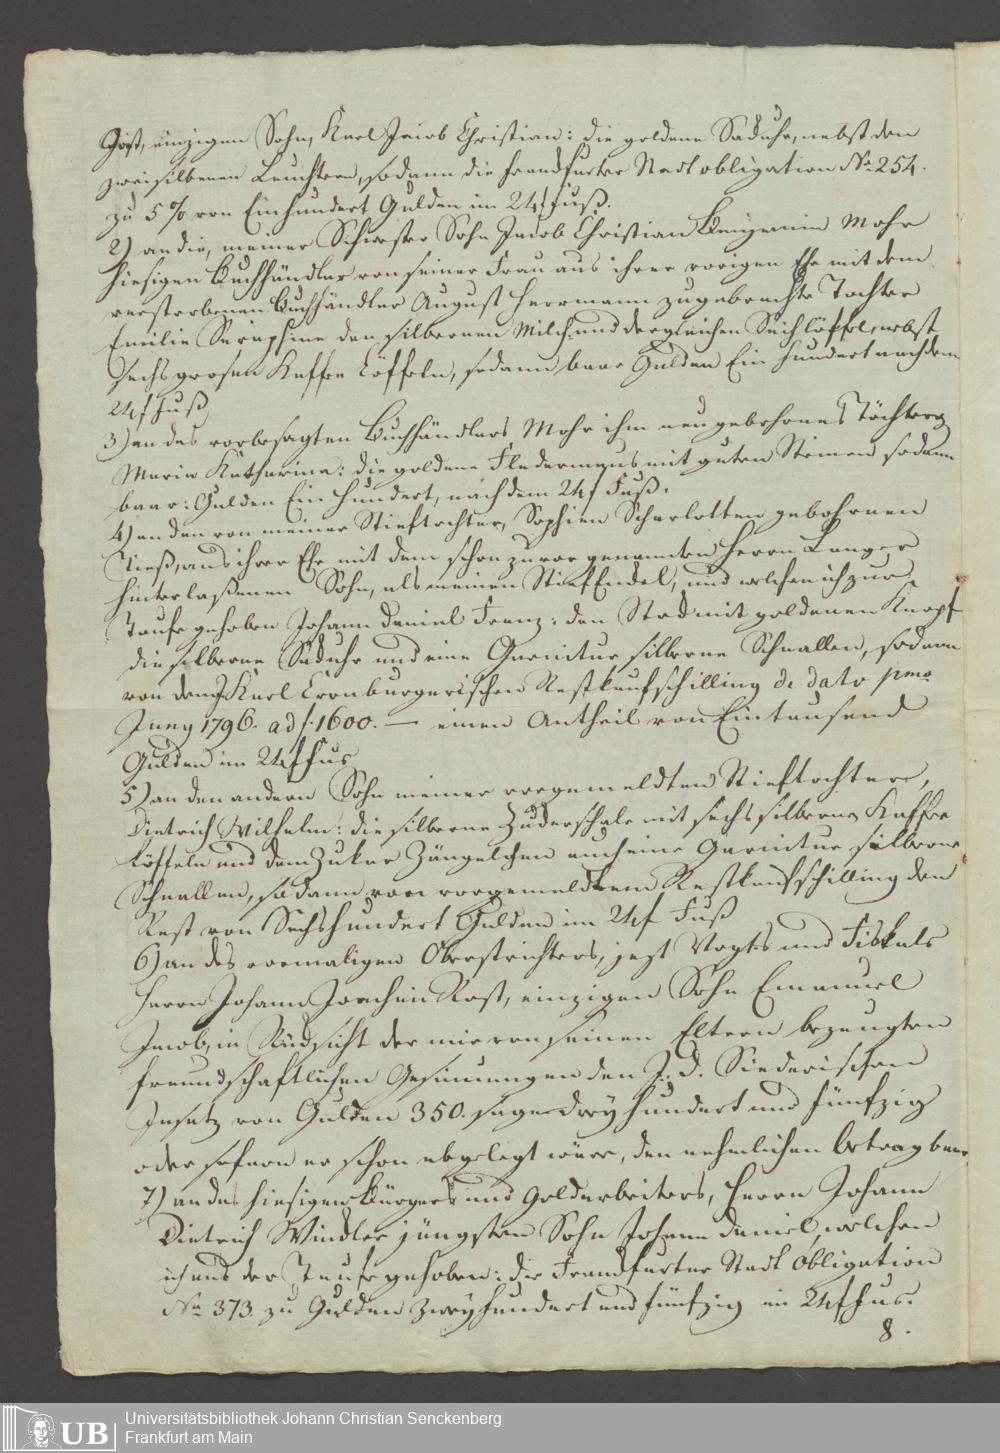 Jost, einzigen Sohn, Karl Jacob Christian: die goldene Sackuhr, nebst den
zwei silbernen Leuchtern, sodann die Frankfurter Stadt obligation No 254.
zu 5 % von Einhundert Gulden im 24 f fuß.
2) an die, meiner Schwester Sohn Jacob Christian Benjamin Mohr
hiesigen Buchhändler von seiner Frau aus ihrer vorigen Ehe mit dem
verstorbenen Buchhändler August Herrmann zugebrachte Tochter
Emilie Seraphine den silbernen Milch- und dergleichen Seihlöffel, nebst
sechs grosen Kaffee Löffeln, sodann baar Gulden Ein hundert nach dem
24 f fuß
3) an des vorbesagten Buchhändlers Mohr ihm neugebohrnes Töchterg
Maria Katharina: die goldene Fledermaus mit guten Steinen sodann
baar: Gulden Ein hundert, nach dem 24 f Fuß.
4) an den von meiner Stieftochter, Sophien Scharlotten gebohrnen
Tieß, aus ihrer Ehe mit dem schon zuvor genannten Herrn Langer
hinterlaßenen Sohn, als meinen Stief Enckel, und welchen ich zur
Taufe gehoben Johann Daniel Franz: den Stock mit goldenen Knopf
die silberne Sackuhr und eine Garnitur silberne Schnallen, sodann
von dem Karl Cronburgerischen Restkaufschilling de dato pmo
Juny 1796. ad f. 1600. — einen Antheil von Eintausend
Gulden im 24 f fus
5) an den andern Sohn meiner vorgemeldten Stieftochter,
Dietrich Wilhelm: die silberne Zuckerschale mit sechs silbern Kaffee
Löffeln und dem Zuker Zängelchen auch eine Garnitur silberne
Schnallen, sodann von vorgemeldtem Restkaufschilling den
Rest von Sechshundert Gulden im 24 f Fuß
6) an des vormaligen Oberstrichters, jezt Vogts und Fiskals
Herrn Johann Joachim Rost, einzigen Sohn Emanuel
Jacob, in Rücksicht der mir von seinen Eltern bezeugten
freundschaftlichen Gesinnungen den J. d. Siederischen
Insatz von Gulden 350. sage dreyhundert und fünfzig
oder sofern er schon abgelegt wäre, den nehmlichen betrag baar,
7) an des hiesigen Bürgers und Goldarbeiters, Herrn Johann
Dietrich Windler jüngsten Sohn Johann Daniel, welchen
ich aus der Taufe gehoben: die Frankfurter Stadt Obligation
No 373. zu Gulden Zweyhundert und fünfzig in 24 f fus.
8.
UB
Universitätsbibliothek Johann Christian Senckenberg
Frankfurt am Main